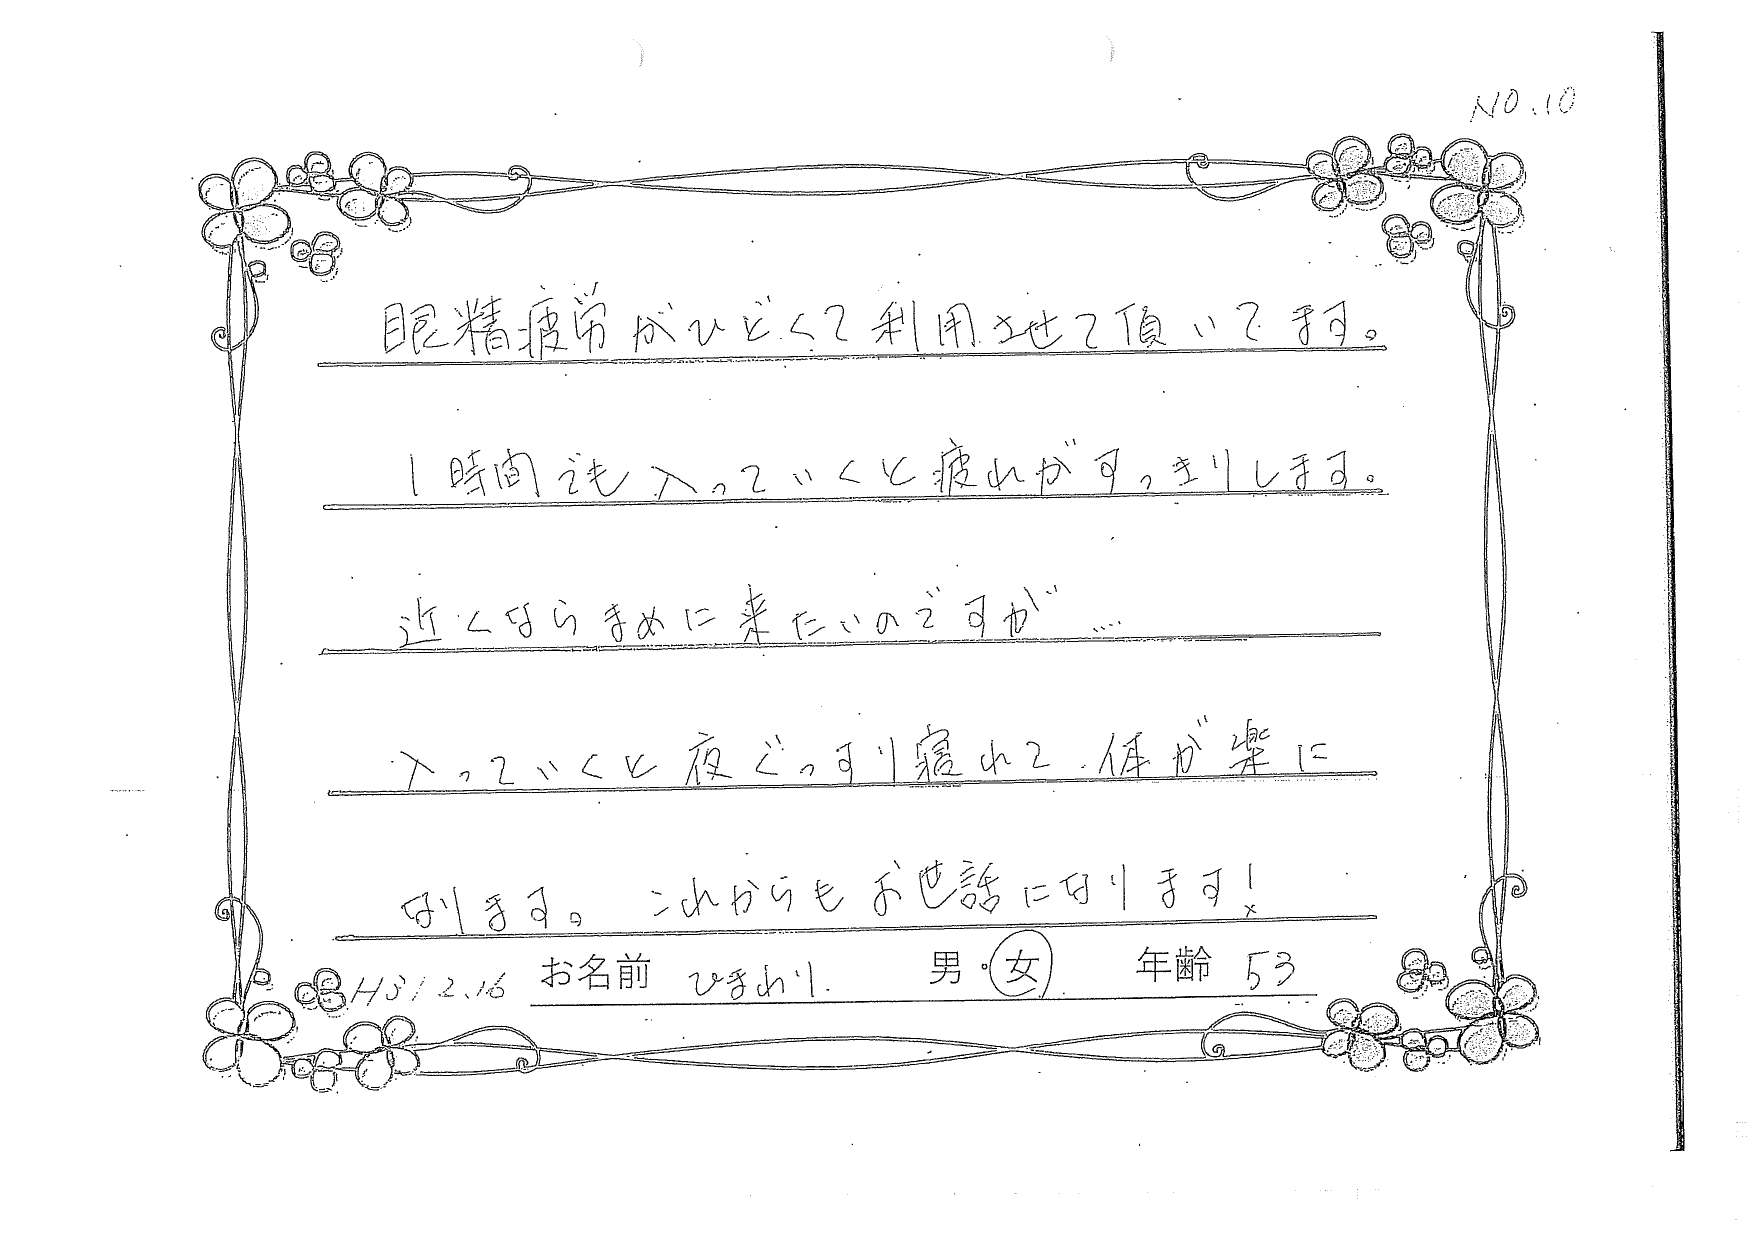 NO.10
眼精疲労がひどくて利用させて頂いてます。
1時間でも入っていくと疲れがすっきりします。
近くならまめに来たいのですが……
入っていくと夜ぐっすり寝れて、体が楽に
なります。これからもお世話になります!
H31 2.16 お名前 ひまわり 男・女 年齢 53